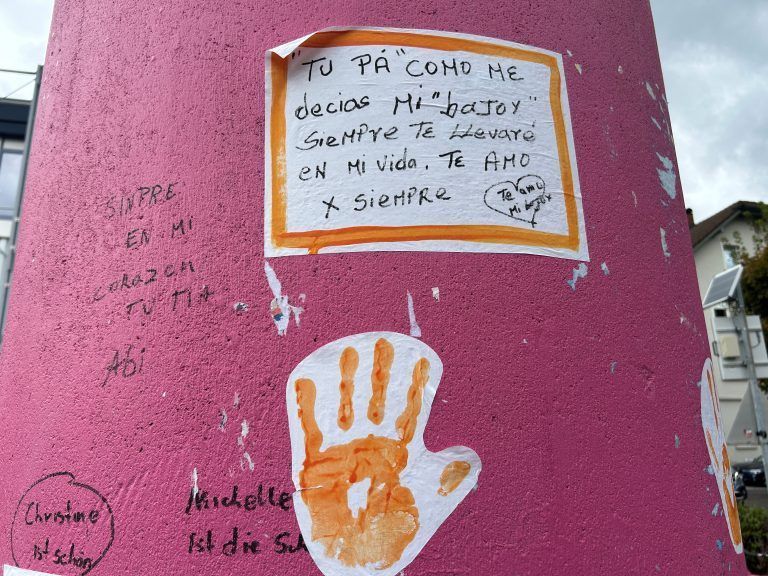 "TU PÁ" COMO ME
decias Mi "bajoy"
SIEMPRE TE LLEVARÉ
EN Mi vida. TE AMO
x SIEMPRE
Te amo
Mi bajoy
SINPRE
EN MI
CORAZON
TU TIA
Abi
Michelle
Ist die Sch
Christine
ist schön